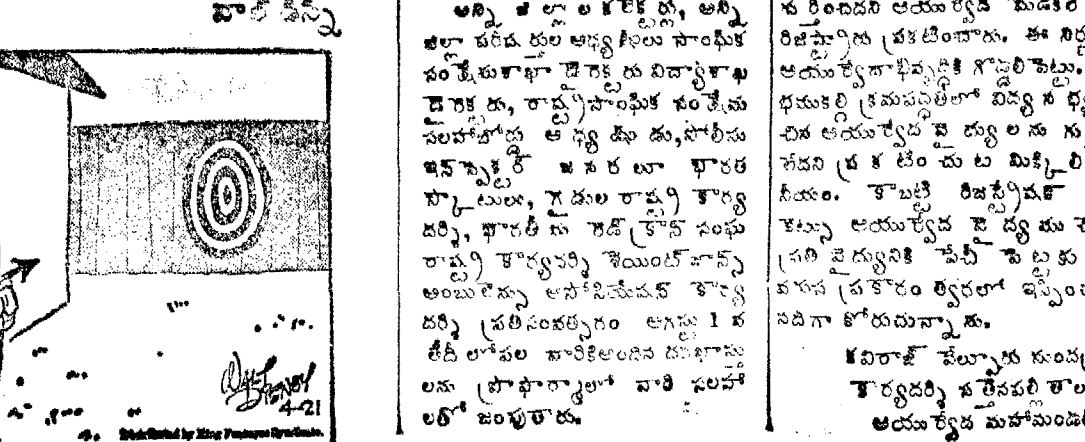 వాల్ డిస్నీ
Walt Disney
4-21
Distributed by King Features Syndicate.
అన్ని జిల్లాల కలెక్టర్లు, అన్ని
జిల్లా పరిషత్తుల అధ్యక్షులు సాంఘిక
సంక్షేమశాఖా డైరెక్టరు విద్యాశాఖ
డైరెక్టరు, రాష్ట్రసాంఘిక సంక్షేమ
సలహాబోర్డు అధ్యక్షుడు, పోలీసు
ఇన్‌స్పెక్టర్ జనరలూ భారత
స్కౌటులు, గైడుల రాష్ట్ర కార్య
దర్శి, భారతీయ రెడ్ క్రాస్ సంఘ
రాష్ట్ర కార్యదర్శి శెయింట్ జాన్స్
అంబులెన్సు అసోసియేషన్ కార్య
దర్శి ప్రతిసంవత్సరం ఆగస్టు 1 వ
తేదీ లోపల వారికిఅందిన దరఖాస్తు
లను ప్రొఫార్మాలో వారి సలహా
లతో జంపుతారు.
రించిదని ఆయుర్వేద
రిజిస్ట్రారు ప్రకటించారు. ఈ
ఆయుర్వేదాభివృద్ధికి గొడ్డలి పెట్టు.
క్రమపద్ధతిలో విద్య
చిన ఆయుర్వేద వైద్యులను
లేదని ప్రకటించుట మిక్కిలి
నీయం. కాబట్టి రిజిస్ట్రేషన్
కట్సు ఆయుర్వేద వైద్యము
ప్రతి వైద్యునికి పేచీ పెట్టకు
ప్రకారం త్వరలో
నదిగా కోరుచున్నాను.
కవిరాజ్ వేల్పూరు
కార్యదర్శి సత్తెనపల్లి
ఆయుర్వేద మహామండ